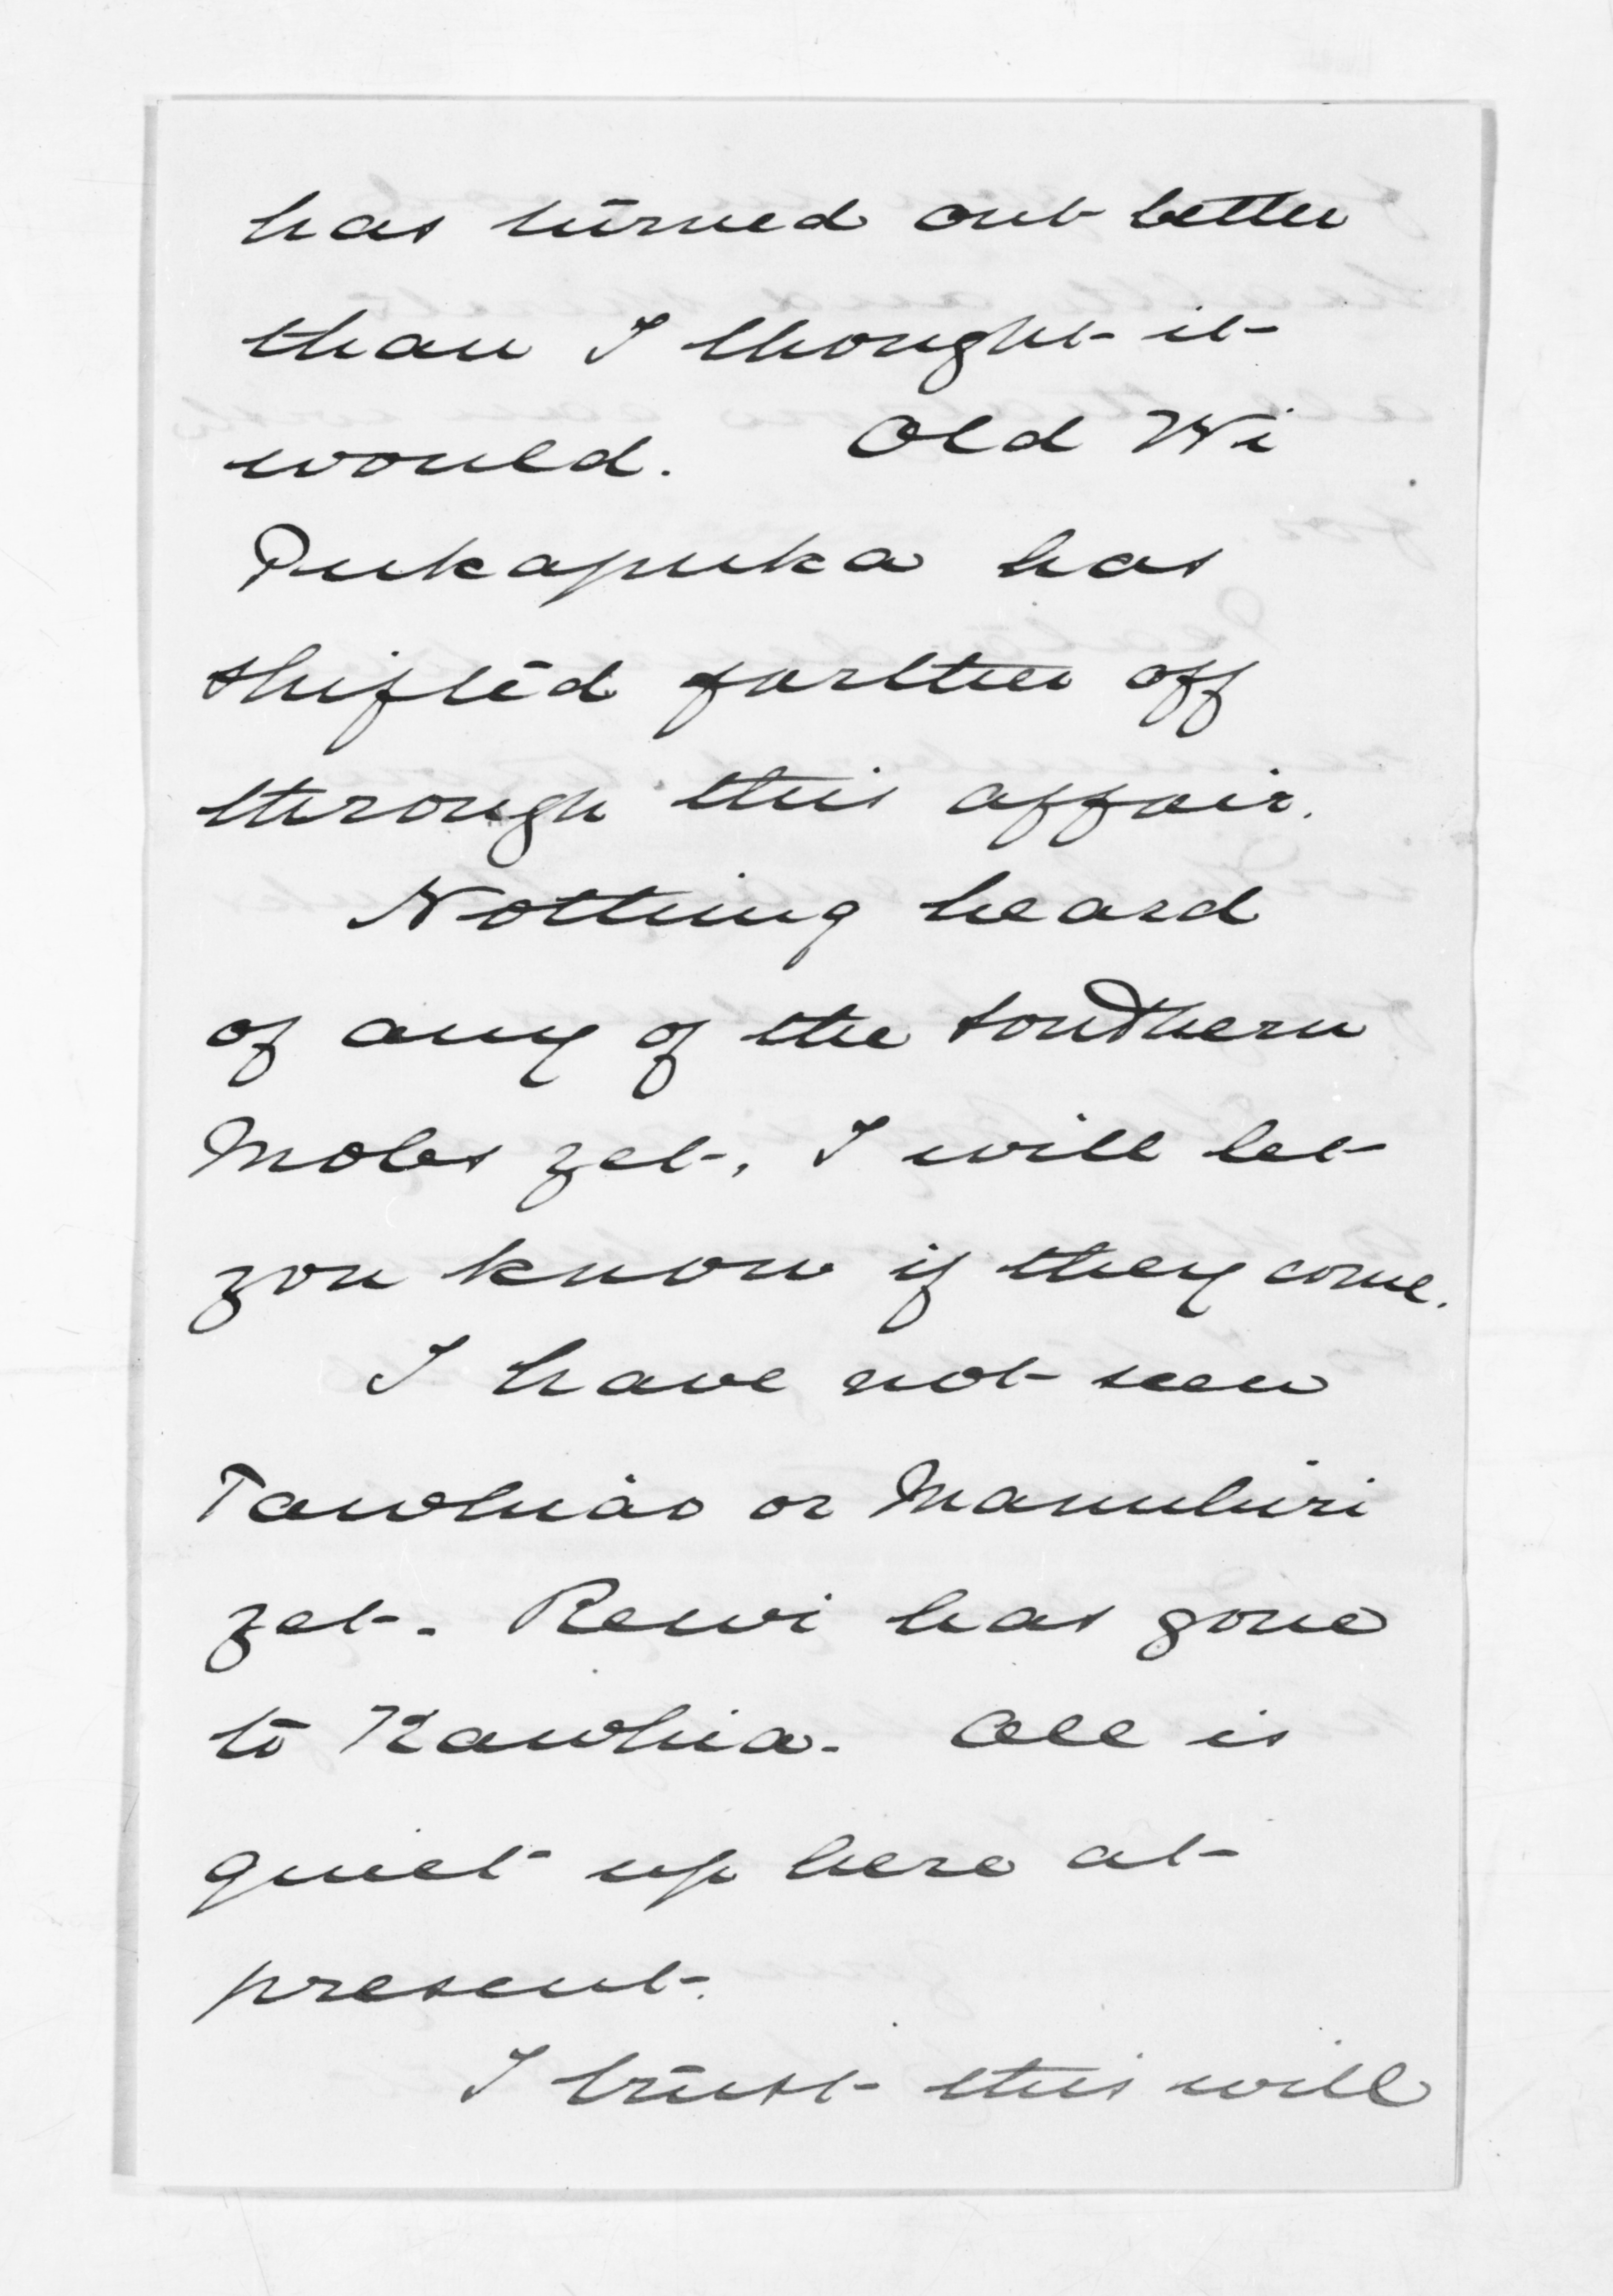 has turned out better
than I thought it
would. Old Wi
Pukapuka has
shifted further off
through this affair.
Nothing heard
of any of the Southern
Mobs yet, I will let
you know if they come.
I have not seen
Tawhiao or Manuhiri
yet. Rewi has gone
to Kawhia. All is
quiet up here at
present.
I trust this will